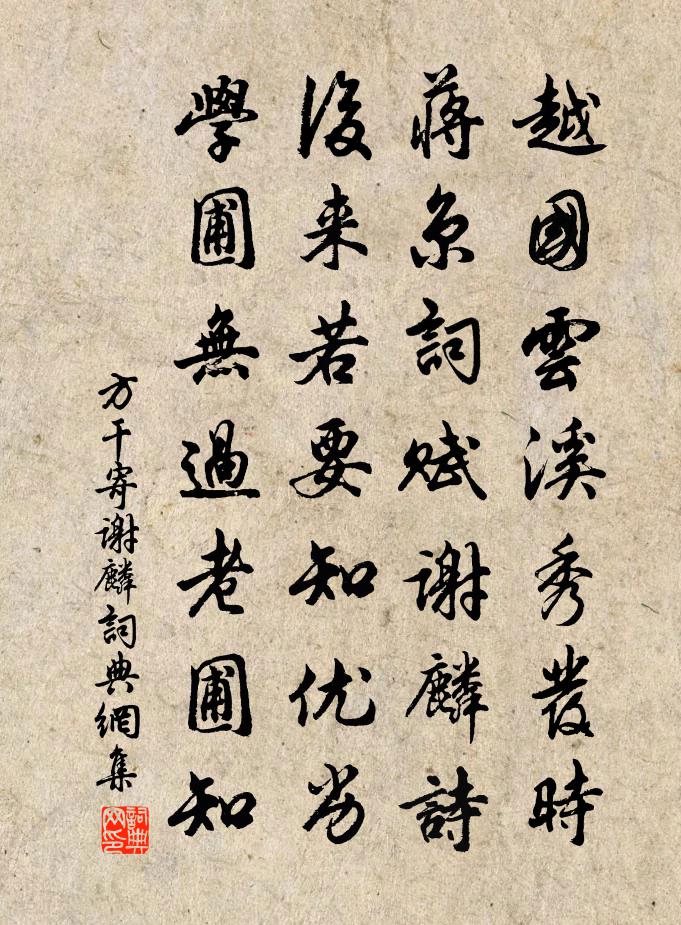 越國雲溪秀發時
蔣京詞賦謝麟詩
後来若要知优劣
學圃無過老圃知
方干寄謝麟詞典網集
詞典網印